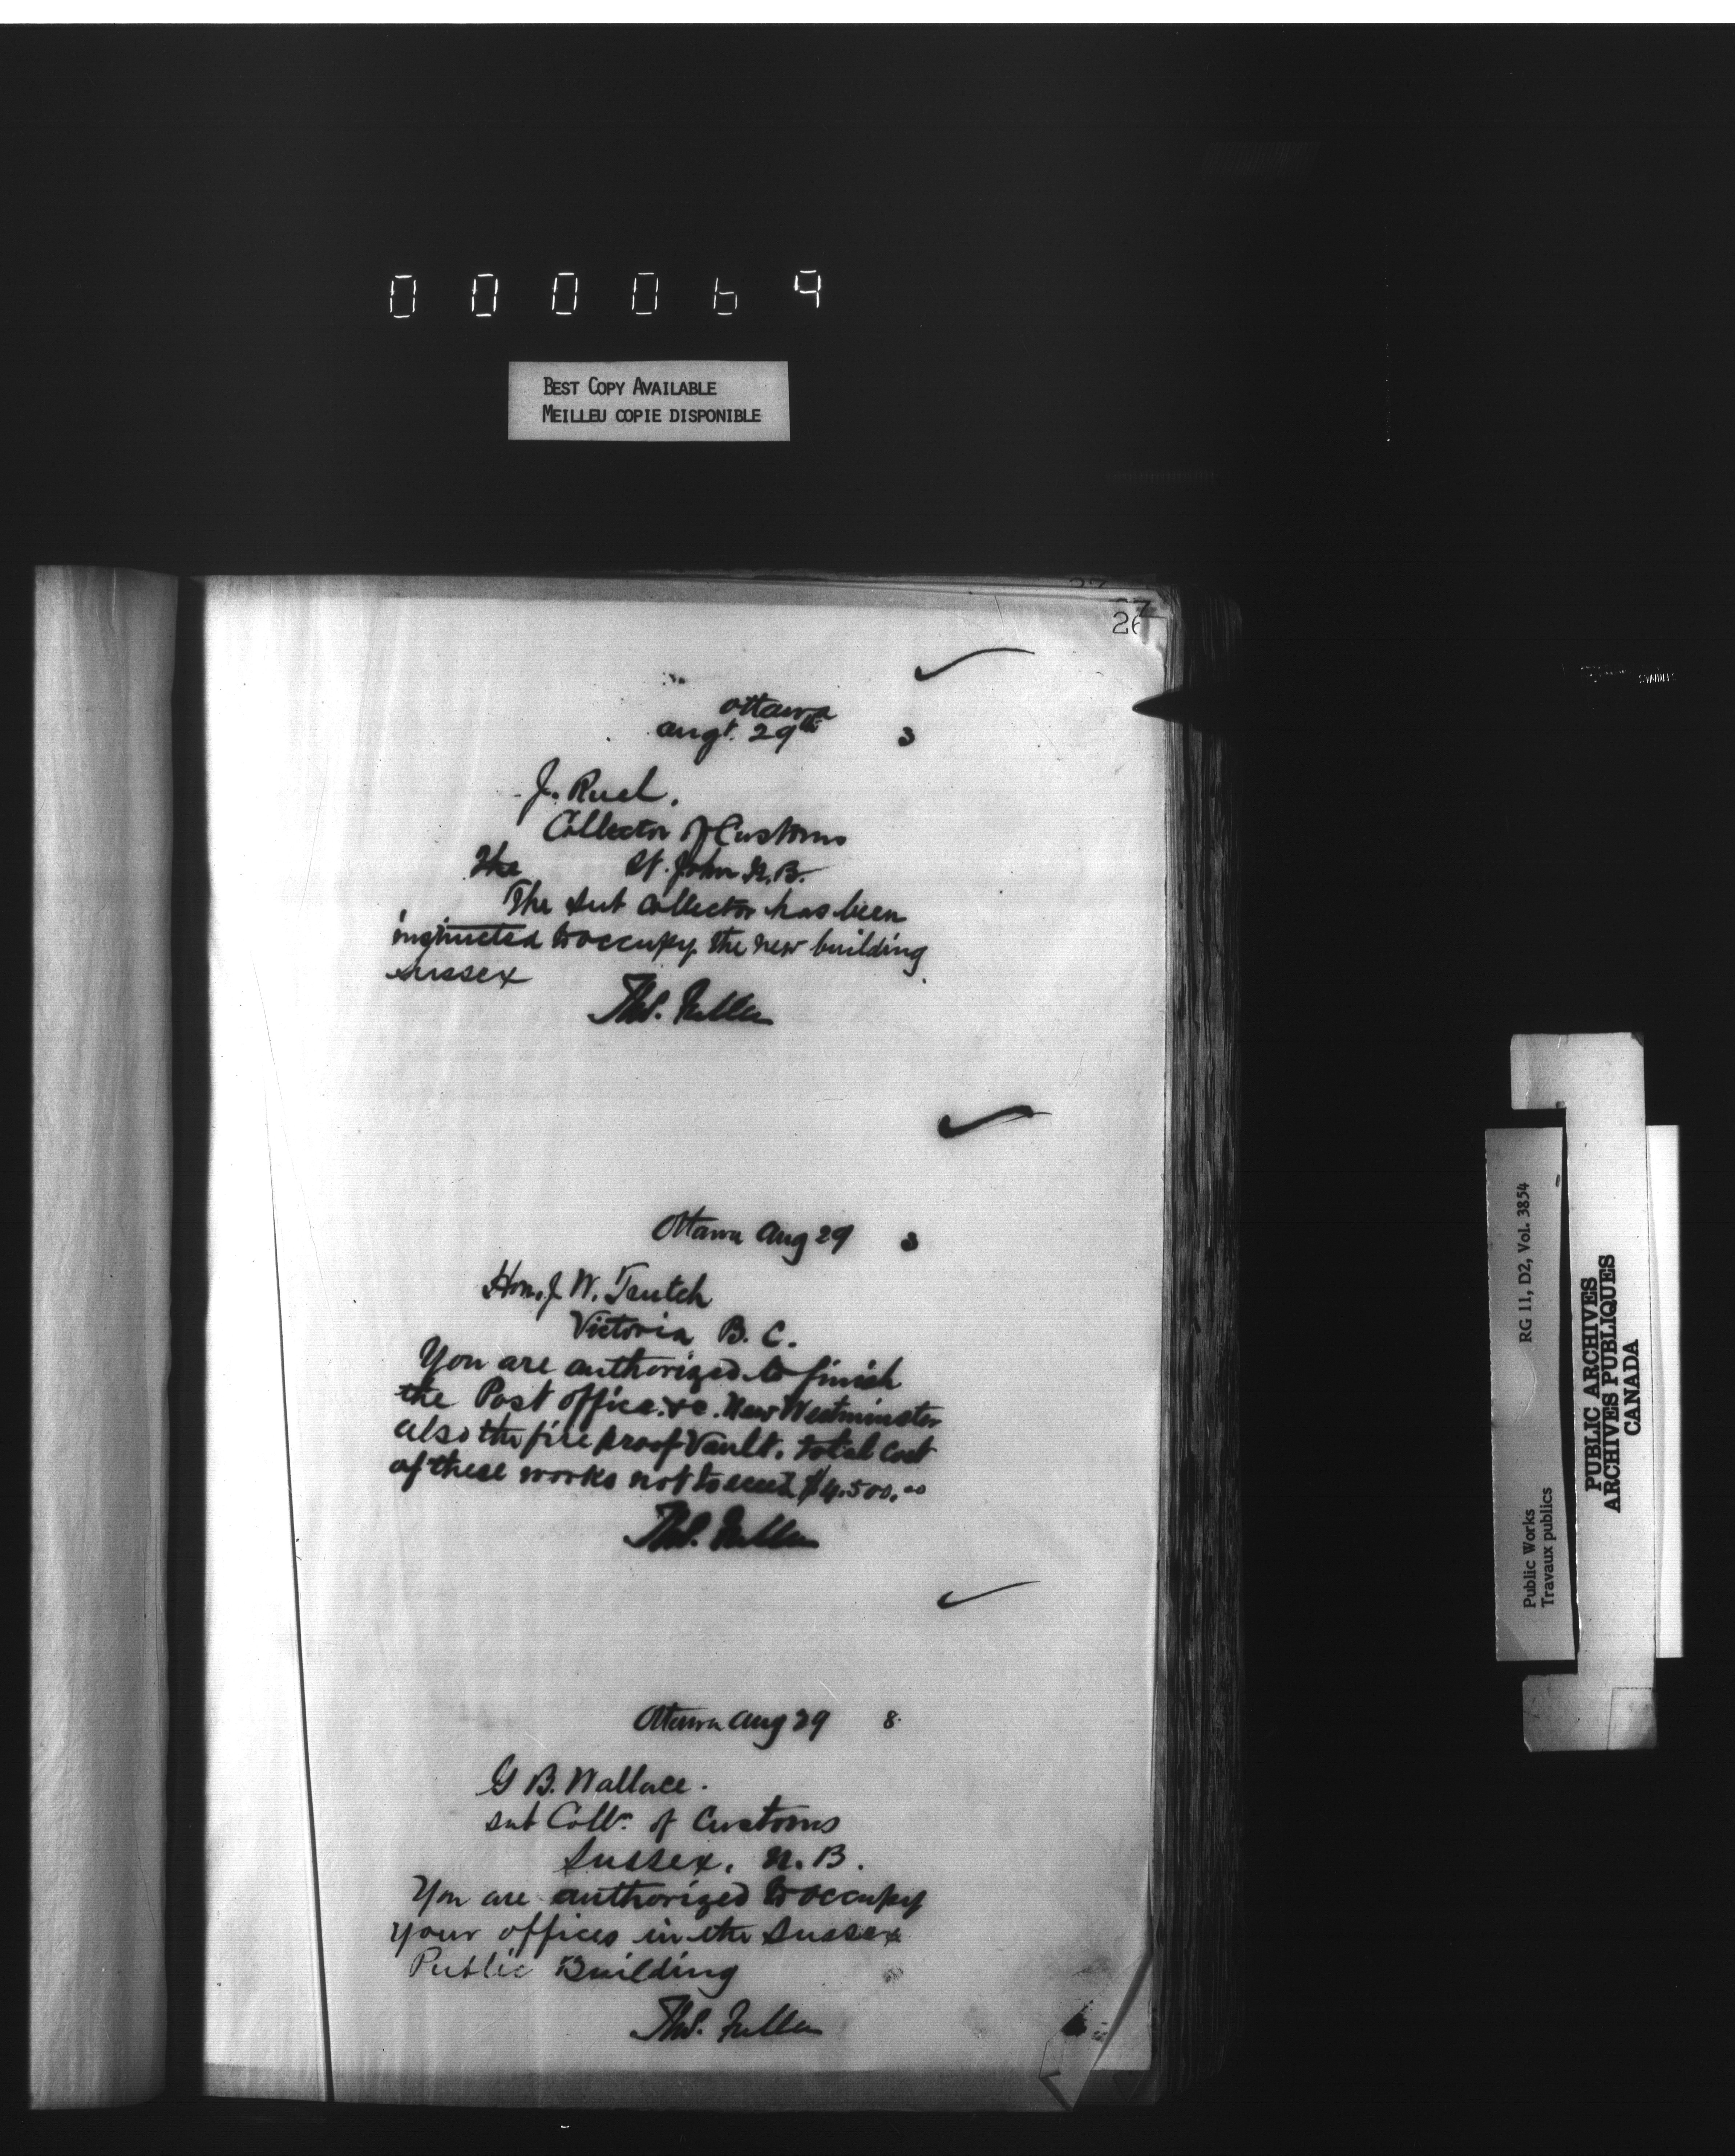 000069
BEST COPY AVAILABLE
MEILLEU COPIE DISPONIBLE
26
Ottawa
Augt. 29th 3
J. Ruel.
Collector of Customs
The St. John N.B.
The Sub Collector has been
instructed to occupy the new building
Sussex
Thos. Fuller
Ottawa Aug 29 3
Hon. J. W. Trutch
Victoria B. C.
You are authorized to finish
the Post Office &c. New Westminster
also the fire proof Vault. total cost
of these works not to exceed $4.500.00
Thos. Fuller
Ottawa Aug 29 8
G B. Wallace.
Sub Collr. of Customs
Sussex, N. B.
You are authorized to occupy
your offices in the Sussex
Public Building
Thos. Fuller
RG 11, D2, Vol. 3854
Public Works
Travaux publics
PUBLIC ARCHIVES
ARCHIVES PUBLIQUES
CANADA